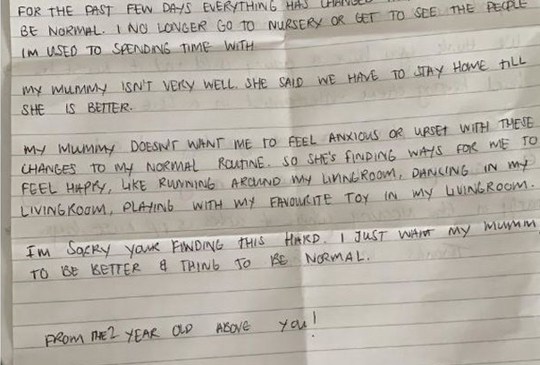 FOR THE PAST FEW DAYS EVERYTHING HAS
BE NORMAL. I NO LONGER GO TO NURSERY OR GET TO SEE THE PEOPLE
IM USED TO SPENDING TIME WITH
MY MUMMY ISN'T VERY WELL. SHE SAID WE HAVE TO STAY HOME TILL
SHE IS BETTER.
MY MUMMY DOESN'T WANT ME TO FEEL ANXIOUS OR UPSET WITH THESE
CHANGES TO MY NORMAL ROUTINE. SO SHE'S FINDING WAYS FOR ME TO
FEEL HAPPY, LIKE RUNNING AROUND MY LIVINGROOM, DANCING IN MY
LIVINGROOM, PLAYING WITH MY FAVOURITE TOY IN MY LIVINGROOM.
IM SORRY YOUR FINDING THIS HARD. I JUST WANT MY MUMM
TO BE BETTER & THING TO BE NORMAL.
FROM THE 2 YEAR OLD ABOVE YOU!